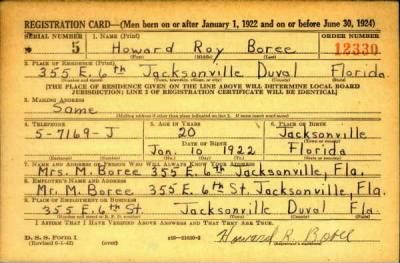 REGISTRATION CARD—(Men born on or after January 1, 1922 and on or before June 30, 1924)
SERIAL NUMBER 1. NAME (Print) ORDER NUMBER
5 Howard Roy Boree 12330
(First) (Middle) (Last)
2. PLACE OF RESIDENCE (Print)
355 E. 6th Jacksonville Duval Florida
(Number and street) (Town, township, village, or city) (County) (State)
[THE PLACE OF RESIDENCE GIVEN ON THE LINE ABOVE WILL DETERMINE LOCAL BOARD
JURISDICTION; LINE 2 OF REGISTRATION CERTIFICATE WILL BE IDENTICAL]
3. MAILING ADDRESS
Same
[Mailing address if other than place indicated on line 2. If same insert word same]
4. TELEPHONE 5. AGE IN YEARS 6. PLACE OF BIRTH
5-7169-J 20 Jacksonville
DATE OF BIRTH (Town or county)
Jan. 10 1922 Florida
(Exchange) (Number) (Mo.) (Day) (Yr.) (State or country)
7. NAME AND ADDRESS OF PERSON WHO WILL ALWAYS KNOW YOUR ADDRESS
Mrs. M. Boree 355 E. 6th Jacksonville, Fla.
8. EMPLOYER'S NAME AND ADDRESS
Mr. M. Boree 355 E. 6th St. Jacksonville, Fla.
9. PLACE OF EMPLOYMENT OR BUSINESS
355 E. 6th St. Jacksonville Duval Fla
(Number and street or R. F. D. number) (Town) (County) (State)
I AFFIRM THAT I HAVE VERIFIED ABOVE ANSWERS AND THAT THEY ARE TRUE.
D. S. S. FORM 1
(Revised 6-1-42) Howard R. Boree
(Registrant's signature)